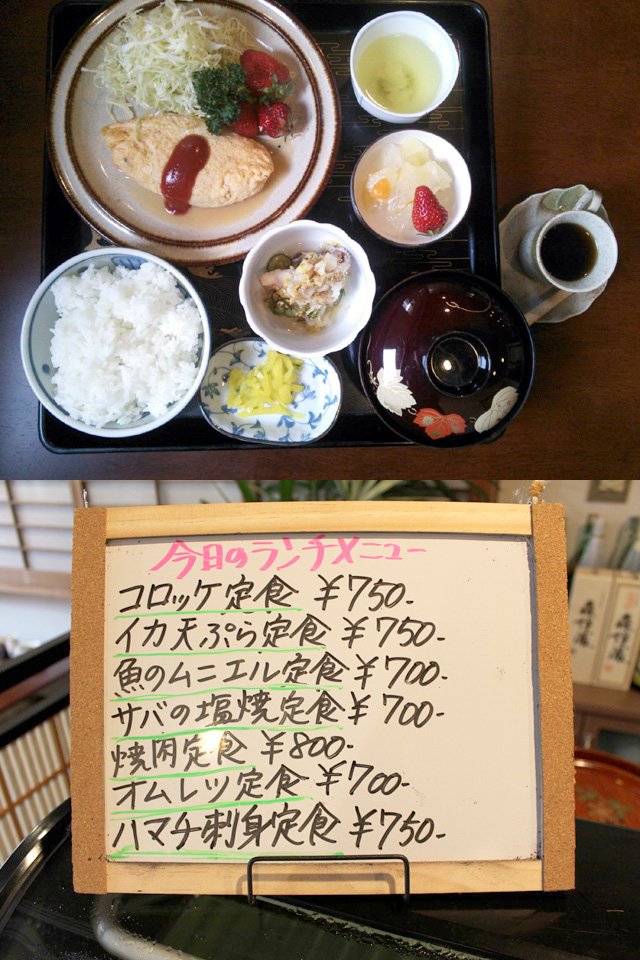 今日のランチメニュー
コロッケ定食 ¥750-
イカ天ぷら定食 ¥750-
魚のムニエル定食 ¥700-
サバの塩焼定食 ¥700-
焼肉定食 ¥800-
オムレツ定食 ¥700-
ハマチ刺身定食 ¥750-